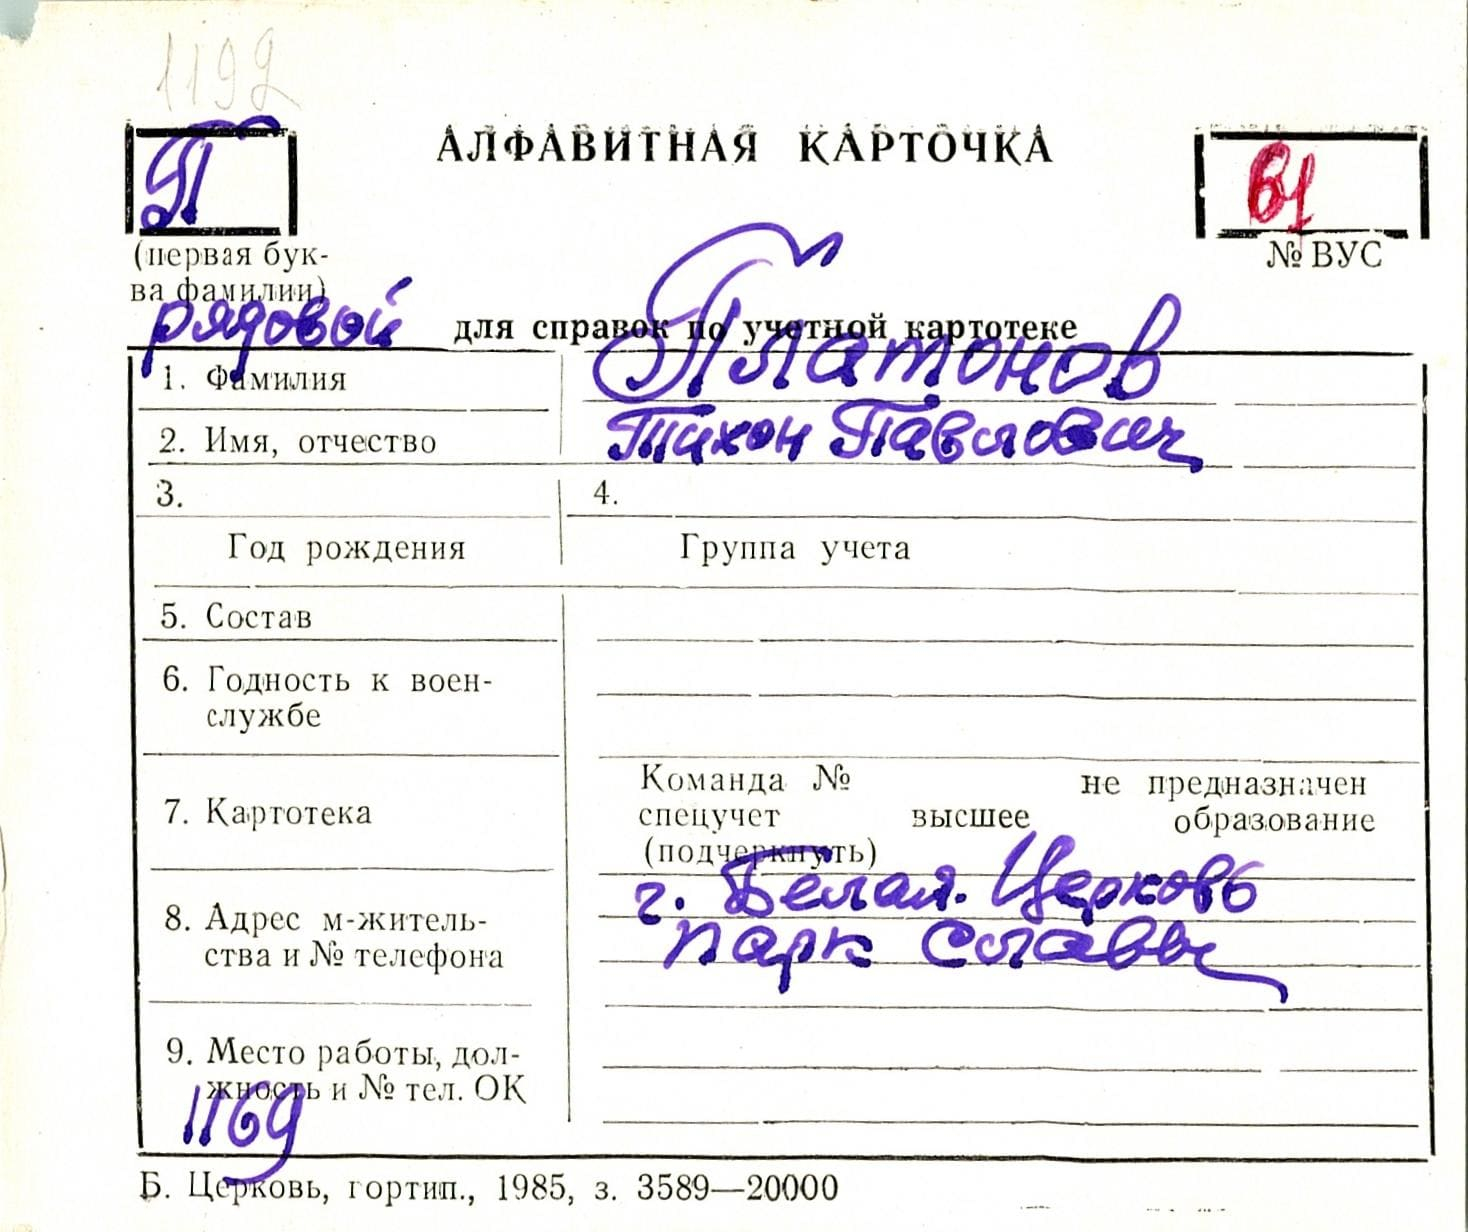 1192
П
АЛФАВИТНАЯ КАРТОЧКА
В1
(первая бук-
ва фамилии)
№ ВУС
рядовой
для справок по учетной картотеке
1. Фамилия Платонов
2. Имя, отчество Тихон Павлович
3. 4.
Год рождения Группа учета
5. Состав
6. Годность к воен-
службе
7. Картотека
Команда № не предназначен
спецучет высшее образование
(подчеркнуть)
8. Адрес м-житель-
ства и № телефона
г. Белая Церковь
парк Славы
9. Место работы, дол-
жность и № тел. ОК
1169
Б. Церковь, гортип., 1985, з. 3589—20000